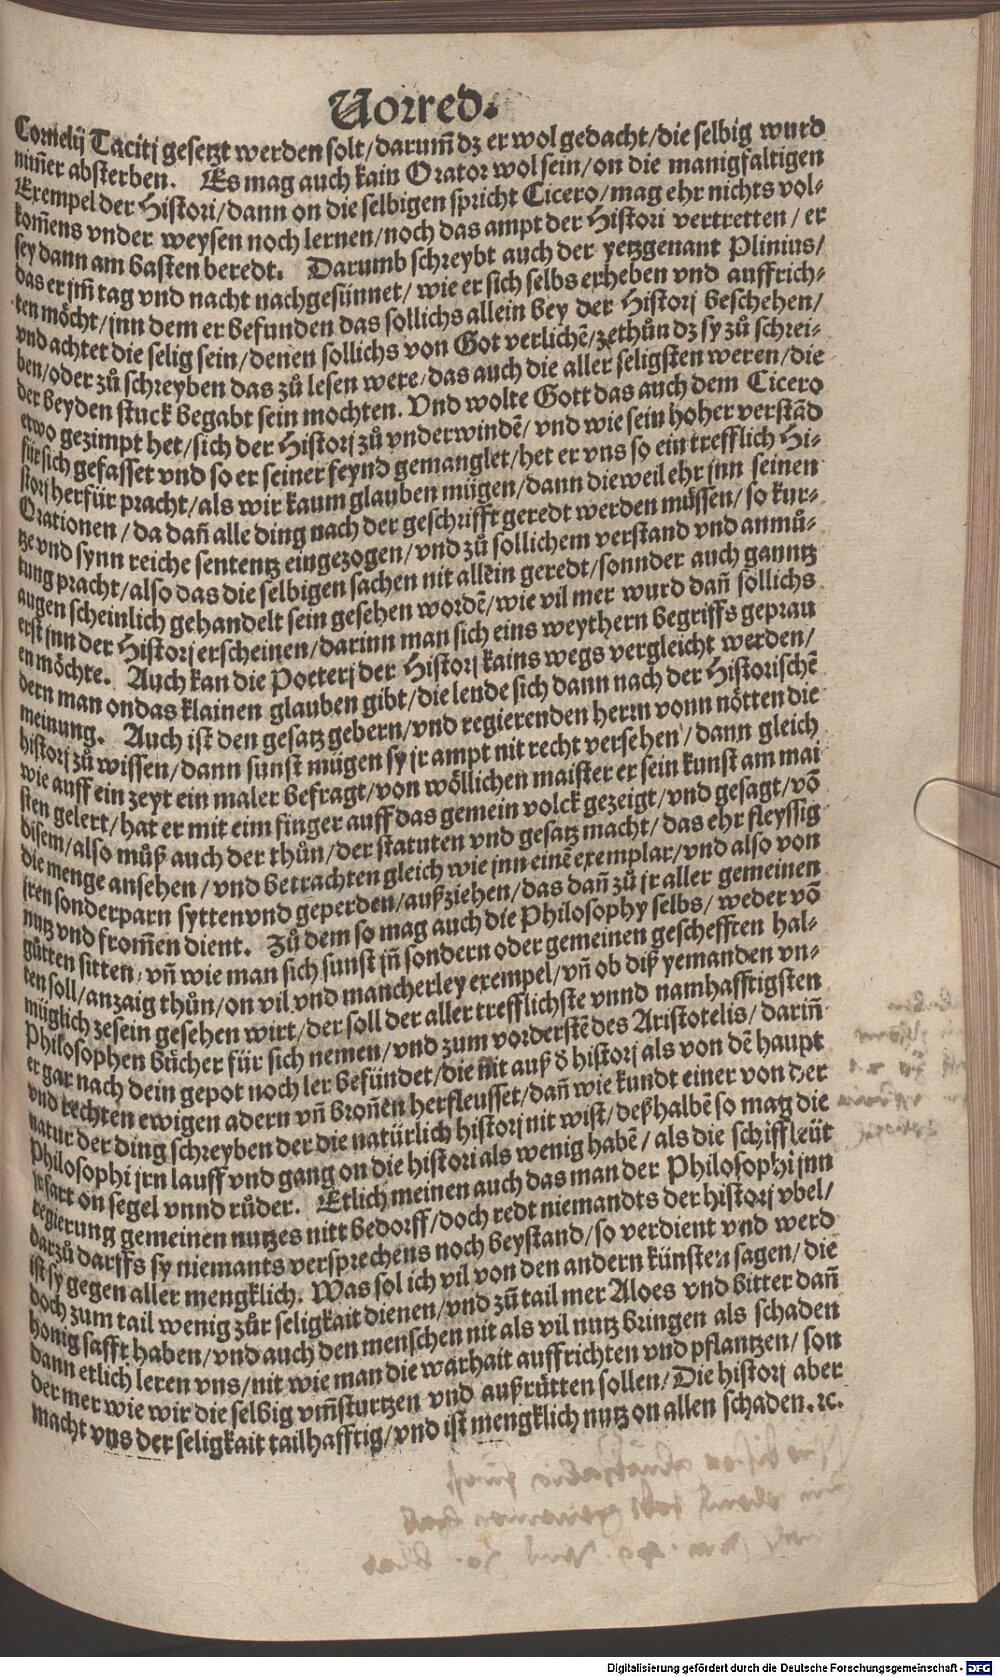 Vorred.
Cornelij Tacitj gesetzt werden solt/darum̃ dz er wol gedacht/die selbig wurd
nim̃er absterben. Es mag auch kain Orator wol sein/on die manigfaltigen
Exempel der Histori/dann on die selbigen spricht Cicero/mag ehr nichts vol-
kom̃ens vnder weysen noch lernen/noch das ampt der Histori vertretten/er
sey dann am basten beredt. Darumb schreybt auch der yetzgenant Plinius/
das er jm̃ tag vnd nacht nachgesünnet/wie er sich selbs erheben vnd auffrich-
ten möcht/jnn dem er befunden das sollichs allein bey der Historj beschehen/
vnd achtet die selig sein/denen sollichs von Got verlichẽ/zethůn dz sy zů schrei-
ben/oder zů schreyben das zů lesen were/das auch die aller seligsten weren/die
der beyden stuck begabt sein mochten. Vnd wolte Gott das auch dem Cicero
etwo gezimpt het/sich der Historj zů vnderwindẽ/vnd wie sein hoher verstãd
für sich gefasset vnd so er seiner feynd gemanglet/het er vns so ein trefflich Hi-
storj herfür pracht/als wir kaum glauben mügen/dann dieweil ehr jnn seinen
Orationen/da dañ alle ding nach der geschrifft geredt werden müssen/so kur-
tze vnd synn reiche sententz eingezogen/vnd zů sollichem verstand vnd anmů-
tung pracht/also das die selbigen sachen nit allein geredt/sonnder auch ganntz
augen scheinlich gehandelt sein gesehen wordẽ/wie vil mer wurd dañ sollichs
erst jnn der Historj erscheinen/darinn man sich eins weythern begriffs geprau
en möchte. Auch kan die Poeterj der Historj kains wegs vergleicht werden/
dern man on das klainen glauben gibt/die lende sich dann nach der Historischẽ
meinung. Auch ist den gesatz gebern/vnd regierenden herrn vonn nötten die
historj zů wissen/dann sunst mügen sy jr ampt nit recht versehen/dann gleich
wie auff ein zeyt ein maler befragt/von wöllichen maister er sein kunst am mai
sten gelert/hat er mit eim finger auff das gemein volck gezeigt/vnd gesagt/võ
disem/also můß auch der thůn/der statuten vnd gesatz macht/das ehr fleyssig
die menge ansehen/vnd betrachten gleich wie jnn einẽ exemplar/vnd also von
jren sonderparn sytten vnd geperden/außziehen/das dañ zů jr aller gemeinen
nutz vnd from̃en dient. Zů dem so mag auch die Philosophy selbs/weder võ
gütten sitten/vñ wie man sich sunst jñ sondern oder gemeinen gescheffen hal-
ten soll/anzaig thůn/on vil vnd mancherley exempel/vñ ob diß yemanden vn-
müglich zesein gesehen wirt/der soll der aller trefflichste vnnd namhafftigsten
Philosophen bücher für sich nemen/vnd zum vorderstẽ des Aristotelis/dariñ
er gar nach dein gepot noch ler befündet/die nit auß d̕ historj als von dẽ haupt
vnd rechten ewigen adern vñ broñen herfleusset/dañ wie kundt einer von der
natur der ding schreyben der die natürlich historj nit wist/deßhalbẽ so mag die
Philosophi jrn lauff vnd gang on die histori als wenig habẽ/als die schiffleüt
jr fart on segel vnnd růder. Etlich meinen auch das man der Philosophi jnn
regierung gemeinen nutzes nitt bedorff/doch redt niemandts der historj vbel/
darzů darffs sy niemants versprechens noch beystand/so verdient vnd werd
ist sy gegen aller mengklich. Was sol ich vil von den andern künsten sagen/die
doch zum tail wenig zůr seligkait dienen/vnd zů tail mer Aloes vnd bitter dañ
honig safft haben/vnd auch den menschen nit als vil nutz bringen als schaden
dann etlich leren vns/nit wie man die warhait auffrichten vnd pflantzen/son
der mer wie wir die selbig vm̃sturtzen vnd außrütten sollen/Die historj aber
macht vns der seligkait tailhafftig/vnd ist mengklich nutz on allen schaden.ꝛc.
Digitalisierung gefördert durch die Deutsche Forschungsgemeinschaft - DFG